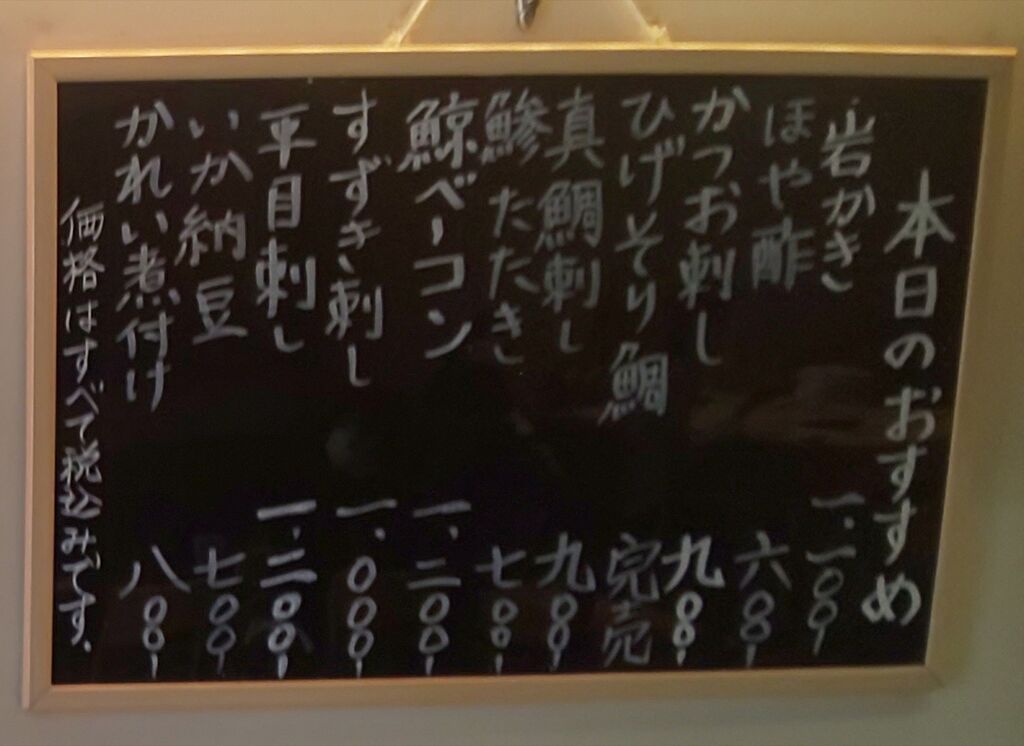 本日のおすすめ
岩かき 一.二00
ほや酢 六00
かつお刺し 九00
ひげそり鯛 完売
真鯛刺し 九00
鯵たたき 七00
鯨ベーコン 一.二00
すずき刺し 一.000
平目刺し 一.二00
いか納豆 七00
かれい煮付け 八00
価格はすべて税込みです.